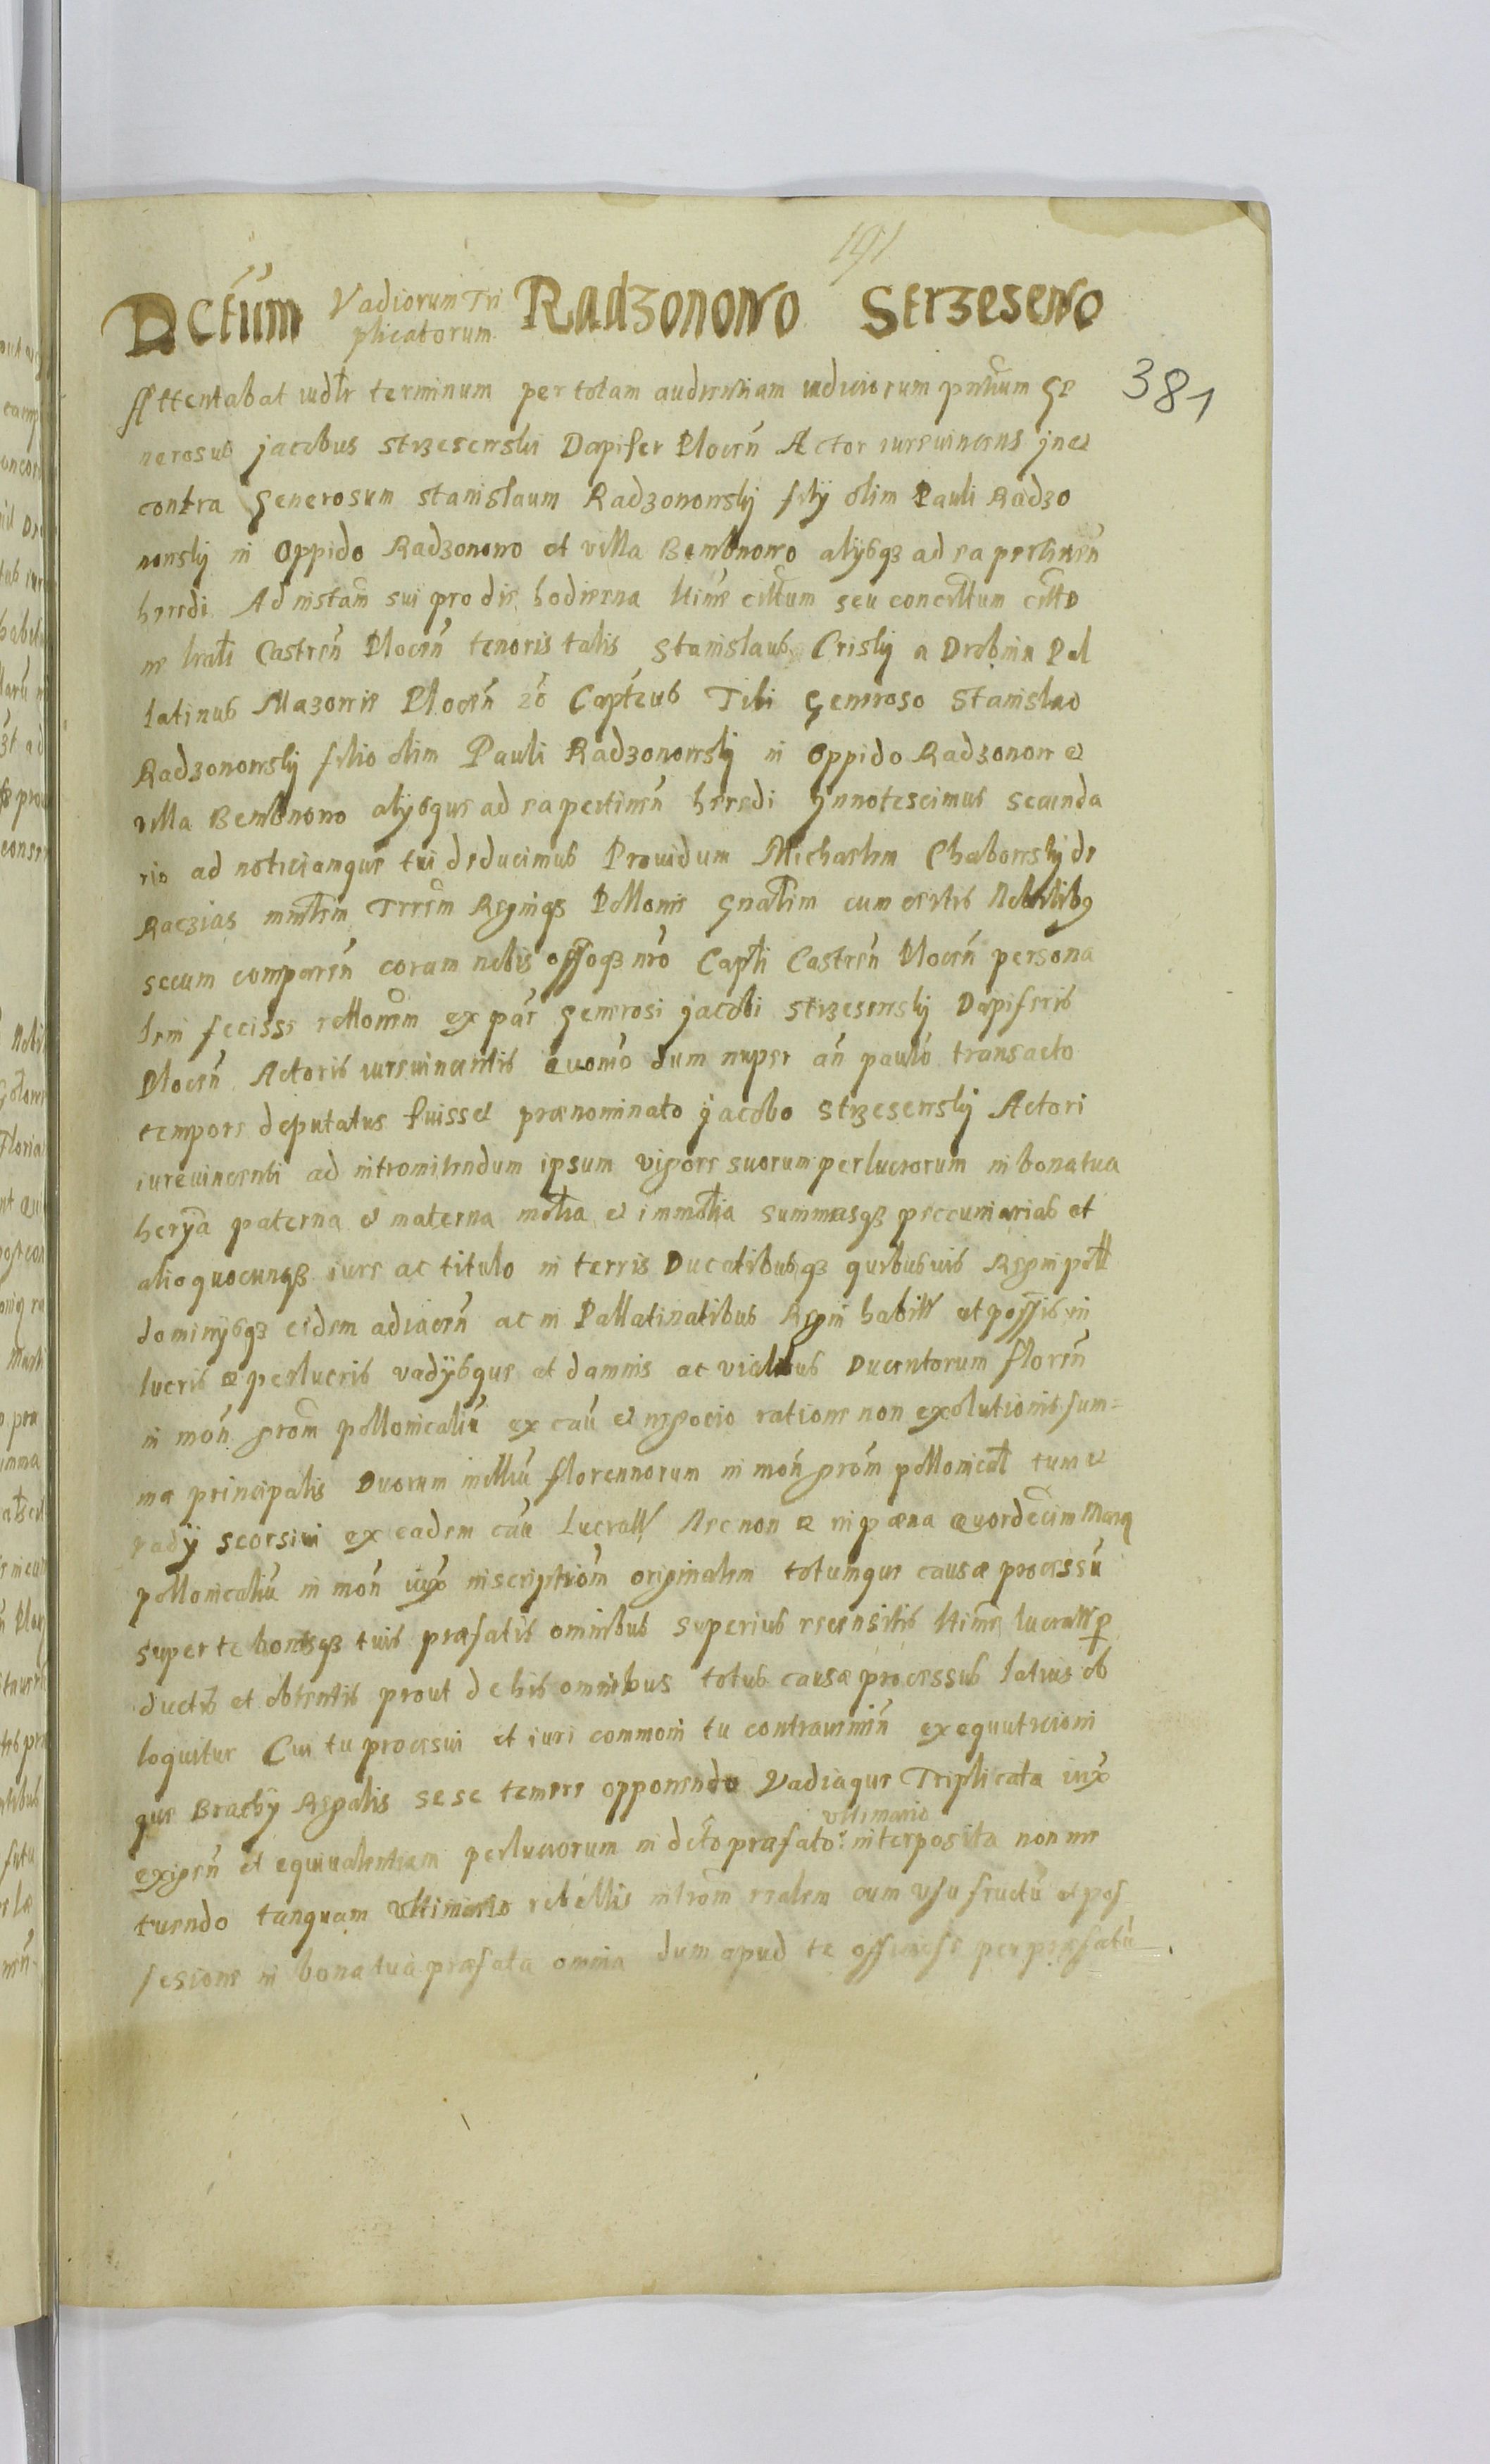 191
Dctum Vadiorum Tri
plicatorum Radzonowo Strzesewo
381
Attentabat iudlr terminum per totam audientiam iudiciorum pntium Ge
nerosus jacobus strzesewski Dapifer Plocen Actor iurevincens jnet
contra Generosum stanislaum Radzonowsky fily olim Pauli Radzo
nowsky in Oppido Radzonowo et villa Bembnowo alijsqz ad ea pertinen
heredi Ad instam sui pro die hodierna ltime cittum seu concittum citto
ne lrali Castren Plocen tenoris talis Stanislaus Crisky a Drobnin Pal
latinus Mazowie Plocen zo Capteus Tibi Generoso Stanislao
Radzonowsky filio olim Pauli Radzonowsky in Oppido Radzonow et
villa Bembnowo alijsque ad ea pertinen heredi Jnnotescimus secunda
rio ad noticiamque tui deducimus Prouidum Michaelem Chabowsky de
Raczias mintlem Trrem Regniqz Pollonie Gnatlem cum certis Nobilibq
secum comparen coram nobis offoqz nro Capli Castren Plocen persona
lem fecisse rellonem ex par Generosi jacobi strzesewsky Dapiferis
Plocen Actoris iurevincentis Quomo dum nuper an paulo transacto
tempore deputatus fuisset prænominato jacobo strzesewsky Actori
iurevincenti ad intromitendum ipsum vigore suorum perlucrorum in bona tua
herijа paterna et materna motlia et immotlia summasqz pecuniarias et
alio quocunqz iure ac titulo in terris Ducatibusqz quibusuis Regni poll
dominijsqz eidem adiacen ac in Pallatinatibus Regni habitt et possis in
lucris et perlucris vadijsque et damnis ac vialibus Ducentorum floren
in mon grom pollonicaliu ex cau et negocio ratione non exolutionis sum=
ma principalis Duorum milliu florennorum in mon grom pollonical tum et
vadij seorsiui ex eadem cau lucratt Nec non et in pæna Quordecim Marcq
pollonicaliu in mon iuxo inscriptiom originalem totumque causæ processu
super te bonisqz tuis præfatis omnibus superius recensitis ltime lucratt p
ductis et obtentis prout de his omnibus totus causæ processus latius ob
loquitur Cui tu processui et iuri commoni tu contrauenien exequuticioni
que Brachij Regalis sese temere opponendo Vadiaque Triplicata iuxo
ultimario
exigen et equiualentiam perlucrorum in dcto præfato interposita non me
tuendo tanquam ultimario rebellis introm realem cum usu fructu et pos
sesione in bona tua præfata omnia dum apud te officiose per præfatu